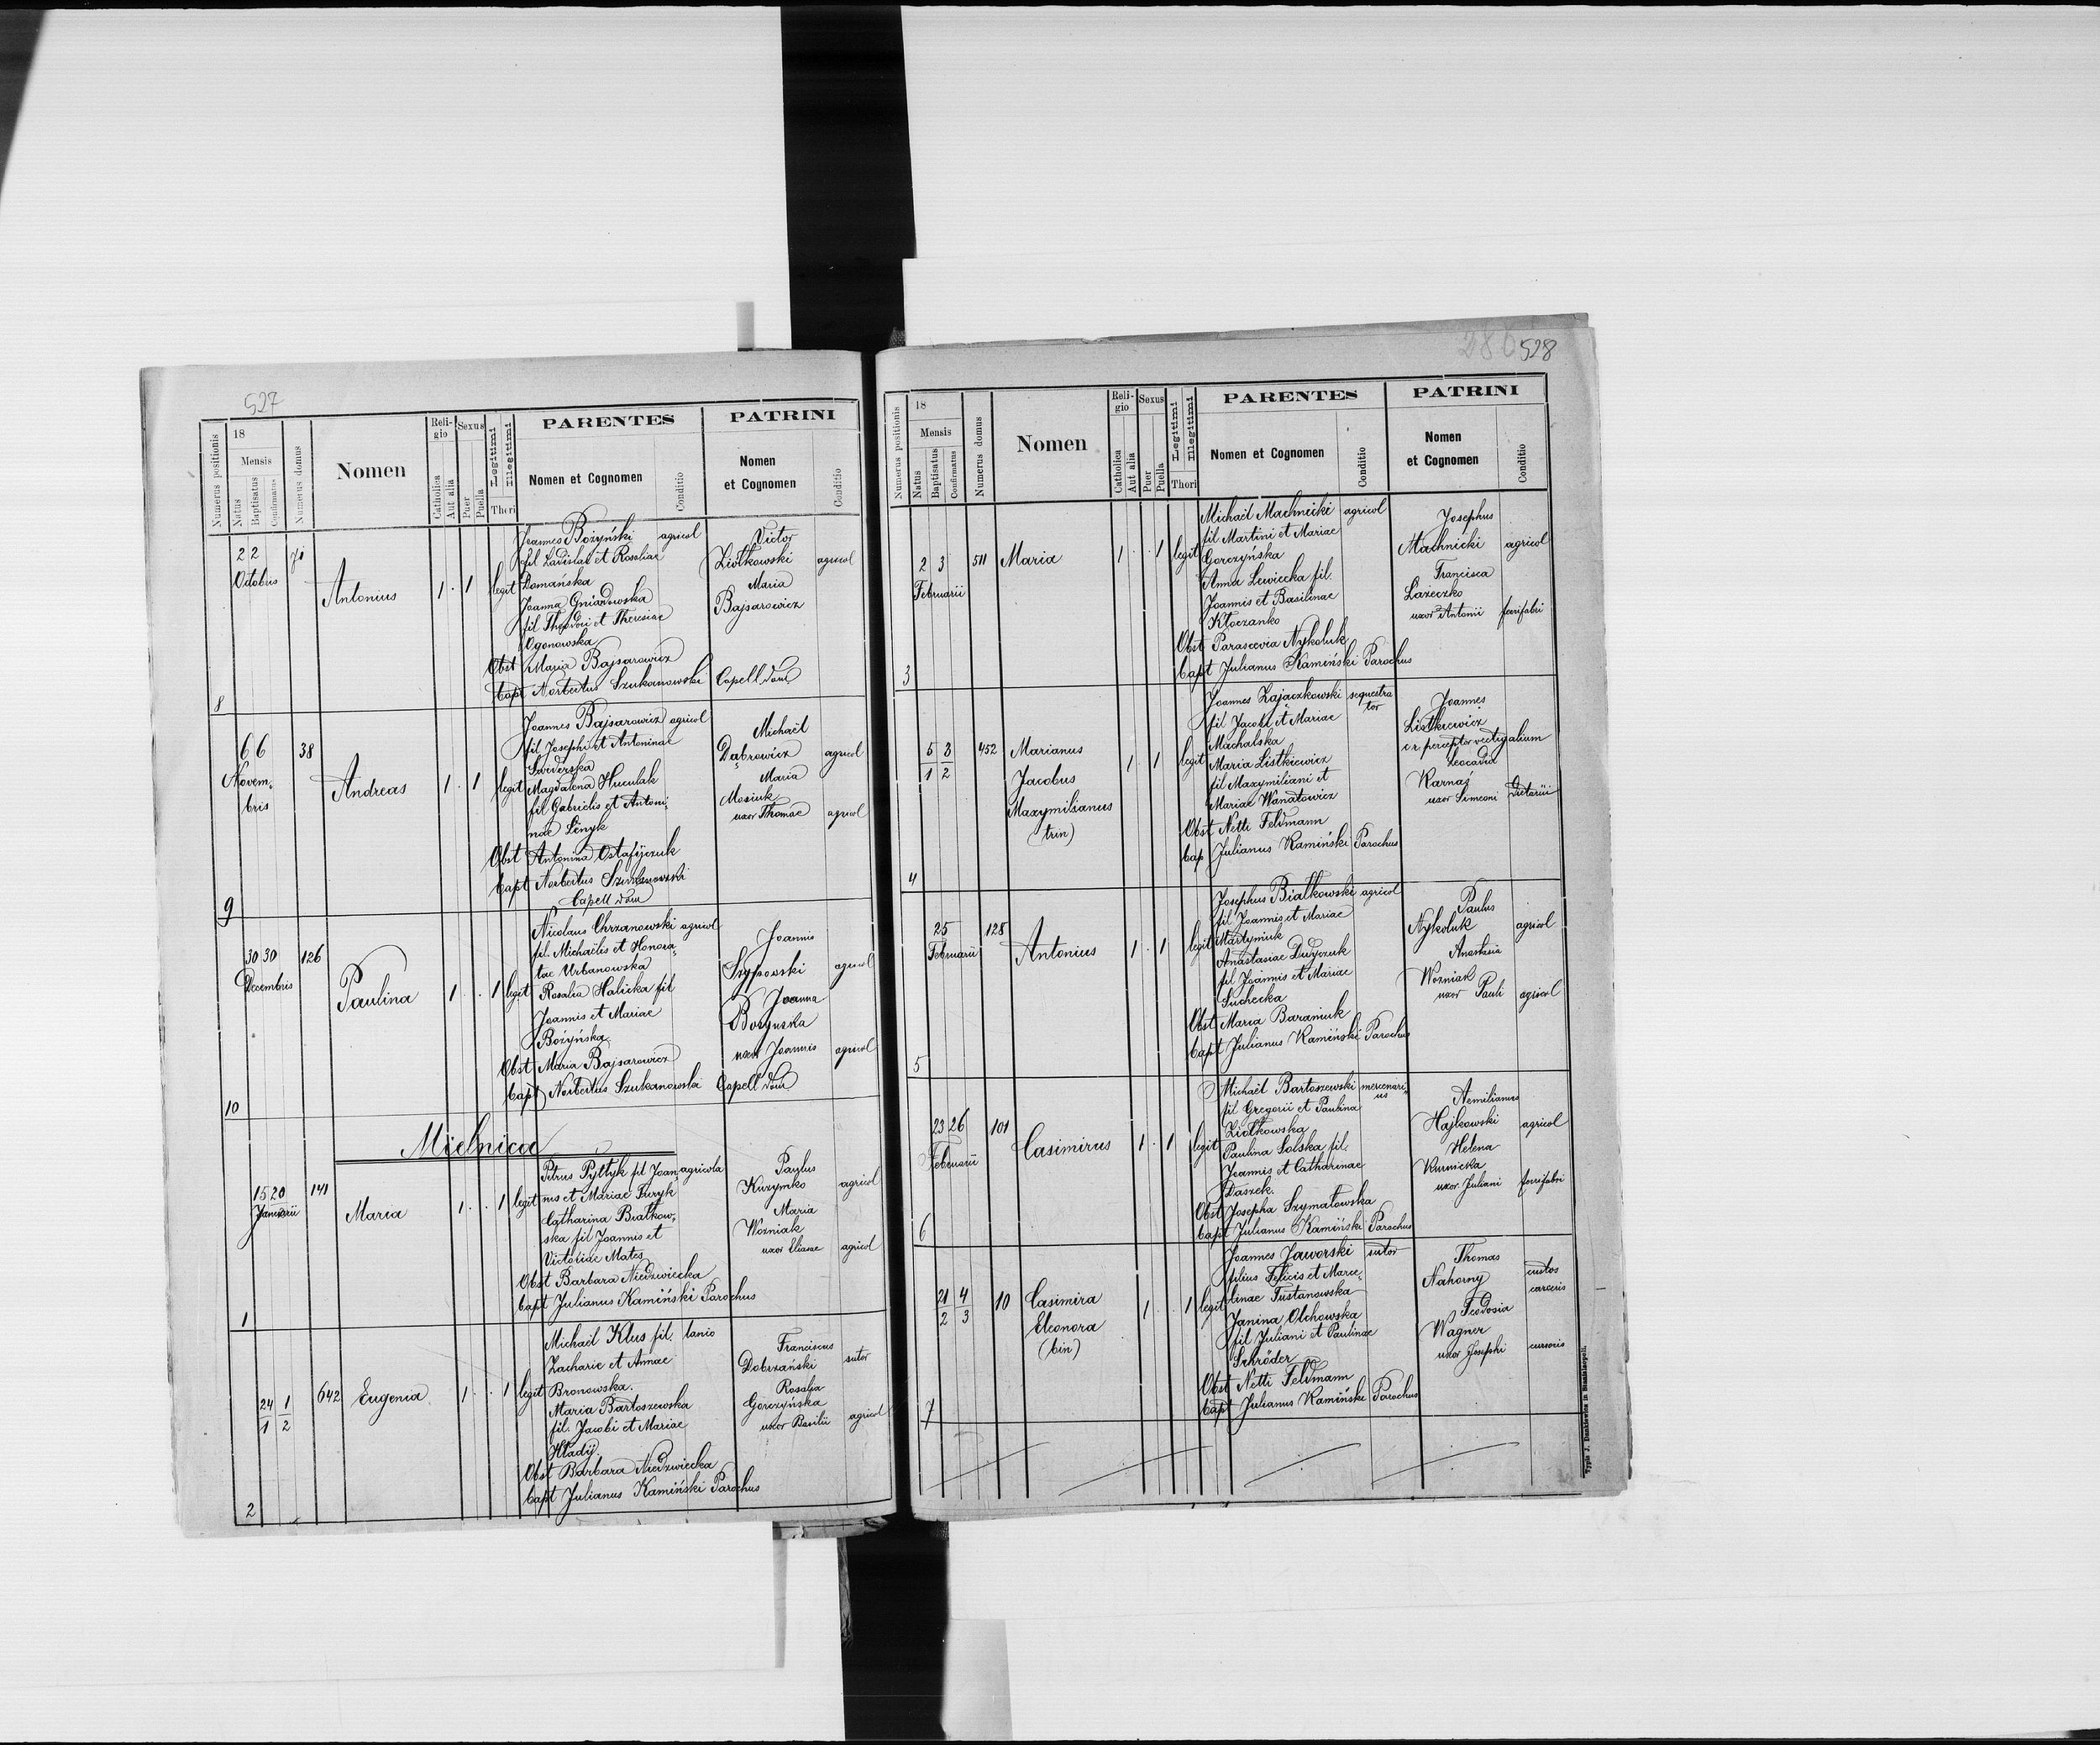 527
Numerus positionis
18
Mensis
Natus
Baptisatus
Confirmatus
Numerus domus
Nomen
Reli-
gio
Catholica
Aut alia
Sexus
Puer
Puella
Legitimi
Illegitimi
Thori
PARENTES
Nomen et Cognomen
Conditio
PATRINI
Nomen
et Cognomen
Conditio
8
2 2
Octobris
71
Antonius
1 . 1
legit
Joannes Bożyński agricol
fil Ladislai et Rosaliae
Domańska
Joanna Gniazdowska
fil Theodori et Theresiae
Ogonowska
Obst Maria Bajsarowicz
Bapt Norbertus Szukanowski Capell dom
Victor
Ziółkowski agricol
Maria
Bajsarowicz
9
6 6
Novem-
bris
38
Andreas
1 . 1
legit
Joannes Bajsarowicz agricol
fil Josephi et Antoninae
Swiderska
Magdalena Huculak
fil Gabrielis et Antoni-
nae Lenyk
Obst Antonina Ostafijczuk
Bapt Norbertus Szukanowski
Capell dom
Michaël
Dąbrowicz agricol
Maria
Mosiuk
uxor Thomae agricol
10
30 30
Decembris
126
Paulina
1 . . 1
legit
Nicolaus Chrzanowski agricol
fil. Michaëlis et Honora-
tae Urbanowska
Rosalia Halicka fil
Joannis et Mariae
Bożyńska
Obst Maria Bajsarowicz
Bapt Norbertus Szukanowski Capell dom
Joannis
Szypowski agricol
Joanna
Bożyńska
uxor Joannis agricol
Mielnica
1
15 20
Januarii
141
Maria
1 . . 1
legit
Petrus Pyłtyk fil Joan- agricola
nis et Mariae Furyk
Catharina Białkow-
ska fil Joannis et
Victoriae Mates
Obst Barbara Niedzwiecka
Bapt Julianus Kamiński Parochus
Paulus
Kuzymko agricol
Maria
Wozniak
uxor Eliasae agricol
2
24 1
1 2
642
Eugenia
1 . . 1
legit
Michaël Klus fil. lanio
Zacharie et Annae
Bronowska.
Maria Bartoszewska
fil. Jacobi et Mariae
Hładij
Obst Barbara Niedzwiecka
Bapt Julianus Kamiński Parochus
Franciscus
Dobrzański sutor
Rosalia
Gorczyńska
uxor Basilii agricol
280 528
Numerus positionis
18
Mensis
Natus
Baptisatus
Confirmatus
Numerus domus
Nomen
Reli-
gio
Catholica
Aut alia
Sexus
Puer
Puella
Legitimi
Illegitimi
Thori
PARENTES
Nomen et Cognomen
Conditio
PATRINI
Nomen
et Cognomen
Conditio
3
2 3
Februarii
511
Maria
1 . . 1
legit
Michaël Machnicki agricol
fil Martini et Mariae
Gorczyńska
Anna Lewiecka fil.
Joannis et Basilinae
Kłoczanko
Obst Parascevia Nykoluk
Bapt Julianus Kamiński Parochus
Josephus
Machnicki agricol
Francisca
Łazeczko
uxor Antonii ferrifabri
4
5 3
1 2
452
Marianus
Jacobus
Maxymilianus
(trin)
1 . 1
legit
Joannes Zajączkowski sequestra
tor
fil Jacobi et Mariae
Machalska
Maria Listkiewicz
fil Maxymiliani et
Mariae Wanatowicz
Obst Netti Feldmann
Bap Julianus Kamiński Parochus
Joannes
Listkiewicz
c. r. perceptor vectigalium
Leocadia
Karnaś
uxor Simeoni Dietarii
5
25
Februarii
128
Antonius
1 . 1
legit
Josephus Białkowski agricol
fil Joannis et Mariae
Martyniuk
Anastasiae Dudyczuk
fil Joannis et Mariae
Suchecka
Obst Maria Baraniuk
Bapt Julianus Kamiński Parochus
Paulus
Nykoluk agricol
Anastasia
Woźniak
uxor Pauli agricol
6
23 26
Februarii
101
Casimirus
1 . 1
legit
Michaël Bartoszewski mercenari-
us
fil Gregorii et Paulina
Ziółkowska
Paulina Solska fil.
Joannis et Catharinae
Daszek.
Obst Josepha Szymatowska
Bapt Julianus Kamiński Parochus
Aemilianus
Hajkowski agricol
Helena
Kurnicka
uxor. Juliani ferrifabri
7
21 4
2 3
10
Casimira
Eleonora
(bin)
1 . . 1
legit
Joannes Jaworski sutor
filius Felicis et Marce-
linae Tustanowska
Janina Olchowska
fil Juliani et Paulinae
Schröder
Obst Netti Feldmann
Bapt Julianus Kamiński Parochus
Thomas
Nahorny custos
carceris
Teodosia
Wagner
uxor Josephi cursoris
Typis J. Dankiewicz in Stanislaopoli.